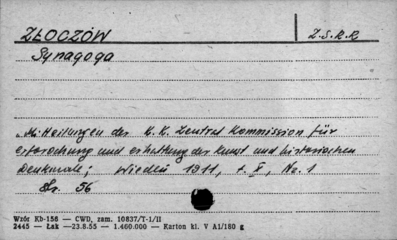 ZŁOCZÓW Z.S.R.R
Synagoga
„Mitteilungen der K. K. Zentral Kommission für
erforschung und erhaltung der kunst und historischen
Denkmale; Wiedeń 1911, t. X, No. 1
Str. 56
Wzór Kb-156 — CWD, zam. 10837/T-1/II
2445 — Łak —23.8.55 — 1.460.000 — Karton kl. V A1/180 g